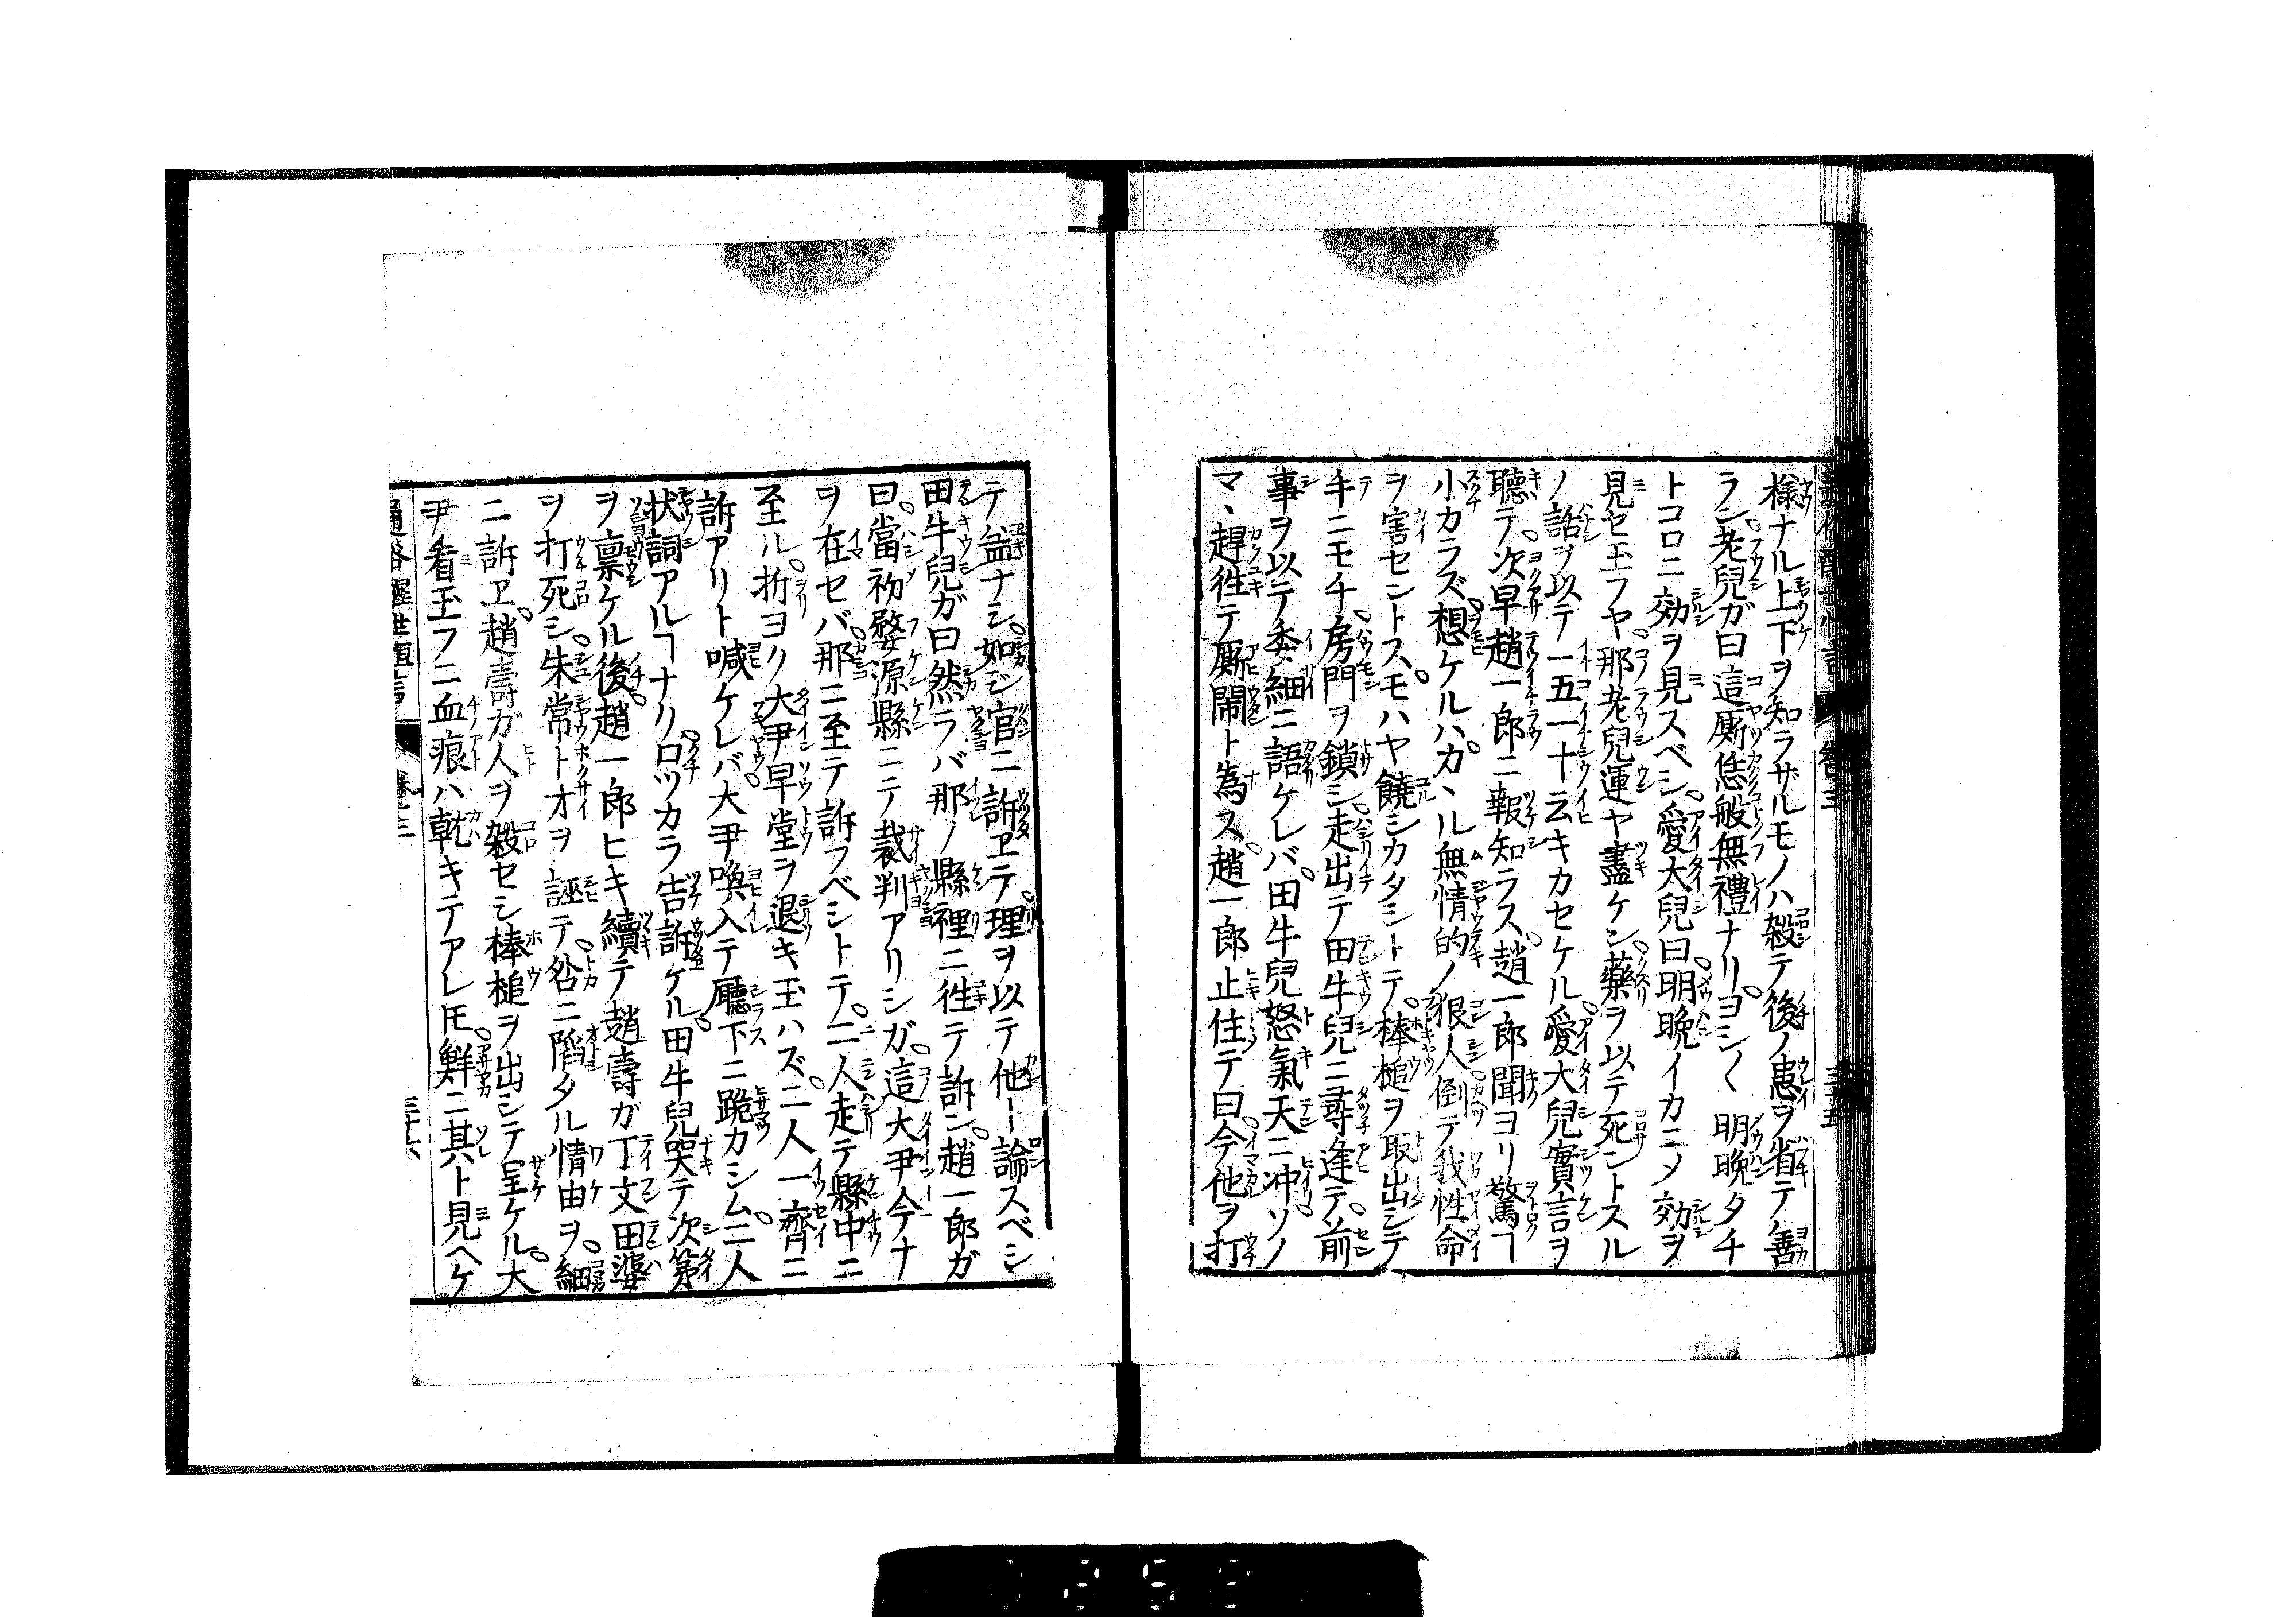 様ナル上下ヲ知ラザルモノハ殺テ後ノ患ヲ省テハ善カ
ラン。老兒ガ曰這厮恁般無禮ナリ。ヨシ〱明晩タチ
トコロニ効ヲ見スベシ。愛大兒曰明晩イカニノ効ヲ
見セ玉フヤ。那老兒運ヤ盡ケン。藥ヲ以テ死ントスル
ノ話ヲ以テ一五一十云キカセケル。愛大兒實言ヲ
聽テ。次早趙一郎ニ報知ラス。趙一郎聞ヨリ驚ヿ
小カラズ。想ケルハ。カヽル無情的ノ狠人倒テ我性命
ヲ害セントス。モハヤ饒シカタシトテ。棒槌ヲ取出シテ
手ニモチ。房門ヲ鎖シ。走出テ田牛兒ニ尋逢テ。前
事ヲ以テ委細ニ語ケレバ。田牛兒怒氣天ニ冲ソノ
マヽ趕徃テ厮鬧ト為ス。趙一郎止住テ曰。今他ヲ打
テ益ナシ。如ジ官ニ訴ヱテ理ヲ以テ他ト論スベシ
田牛兒ガ曰然ラバ那ノ縣裡ニ徃テ訴ン。趙一郎ガ
曰。當初婺源縣ニテ裁判アリシガ。這大尹今ナ
ヲ在セバ。那ニ至テ訴フベシトテ。二人走テ縣中ニ
至ル。折ヨリ大尹早堂ヲ退キ玉ハズ。二人一齊ニ
訴アリト喊ケレバ大尹喚入テ廳下ニ跪カシム。二人
状詞アルヿナリ。口ツカラ告訴ケル。田牛兒哭テ次第
ヲ禀ケル後。趙一郎ヒキ續テ趙壽ガ丁文田婆
ヲ打死シ。朱常トオヲ誣テ。咎ニ陷タル情由ヲ。細
ニ訴ヱ。趙壽ガ人ヲ殺セシ棒槌ヲ出シテ呈ケル。大
尹看玉フニ血痕ハ乾キテアレ𪜈。鮮ニ其ト見ヘケ
通俗醒世恒言 巻三 三十六